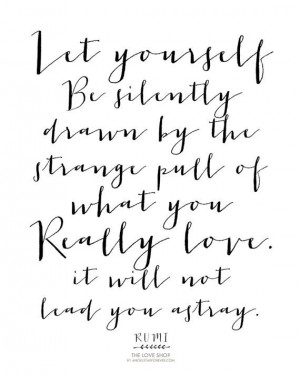 Let yourself
Be silently
drawn by the
strange pull of
what you
Really love.
it will not
lead you astray.
RUMI
THE LOVE SHOP